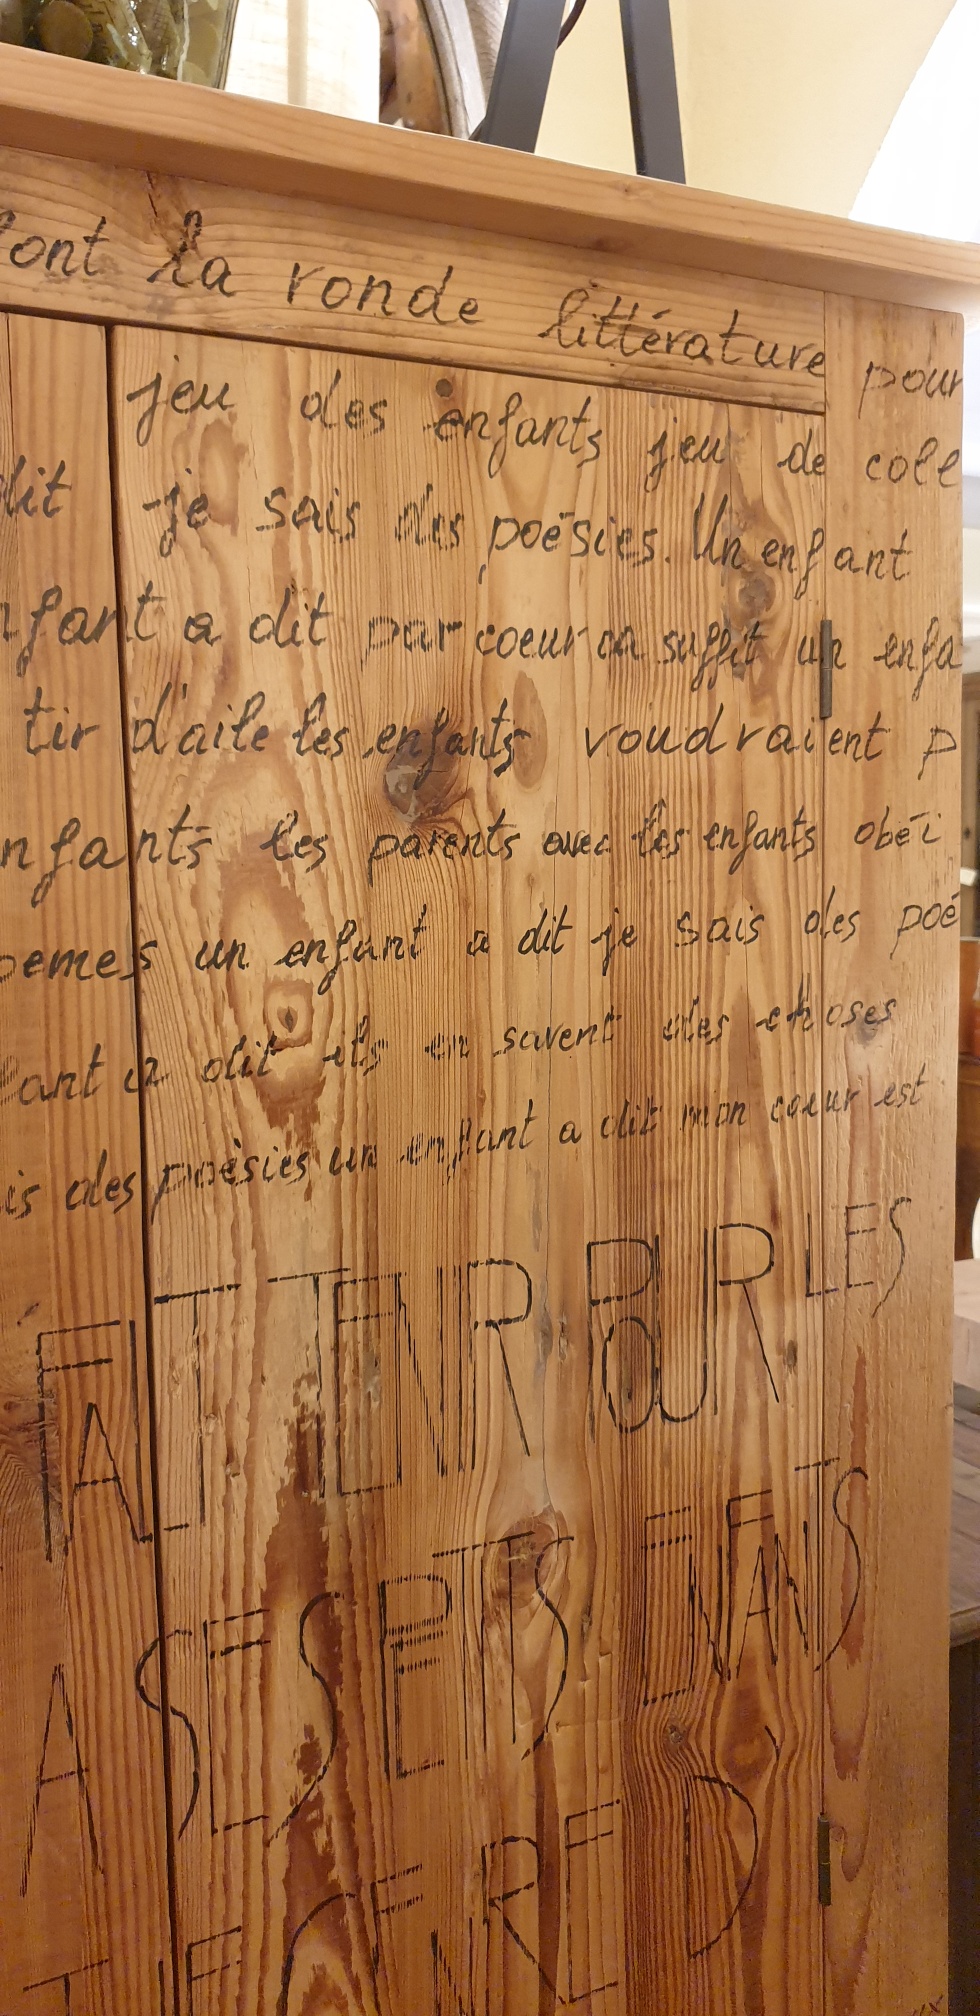 font la ronde littérature pour
jeu des enfants jeu de coll
dit je sais des poésies. Un enfant
nfant a dit par coeur ça suffit un enfa
tir d'aile les enfants voudraient p
nfants les parents avec les enfants obéi
oemes un enfant a dit je sais des poé
fant a dit ils en savent des choses
is des poèsies un enfant a dit mon coeur est
FAIT TENIR POUR LES
A SES PETITS ENFANTS